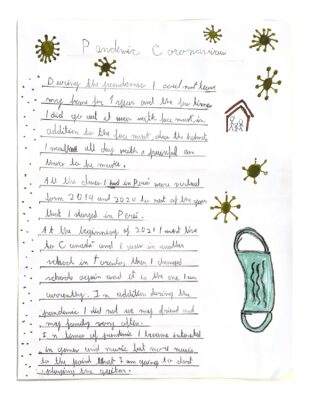 Pandemic Coronavirus
During the pandemic I could not leave
my home for 1 year and the few times
I did go out it was with face mask, in
addition to the face mask also the helmet,
I walked all day with a painful ear
due to be mask.
All the classes I had in Perú were virtual
form 2019 and 2020 to rest of the year
that I stayed in Perú.
At the beginning of 2021 I went live
to Canada and I was in another
school in toronto, then I changed
schools again and it is the one I am
currently. In addition during the
pandemic I did not see my friend and
my family very often.
In times of pandemic I became interested
in games and music but more music
to the point that I am going to start
playing the guitar.